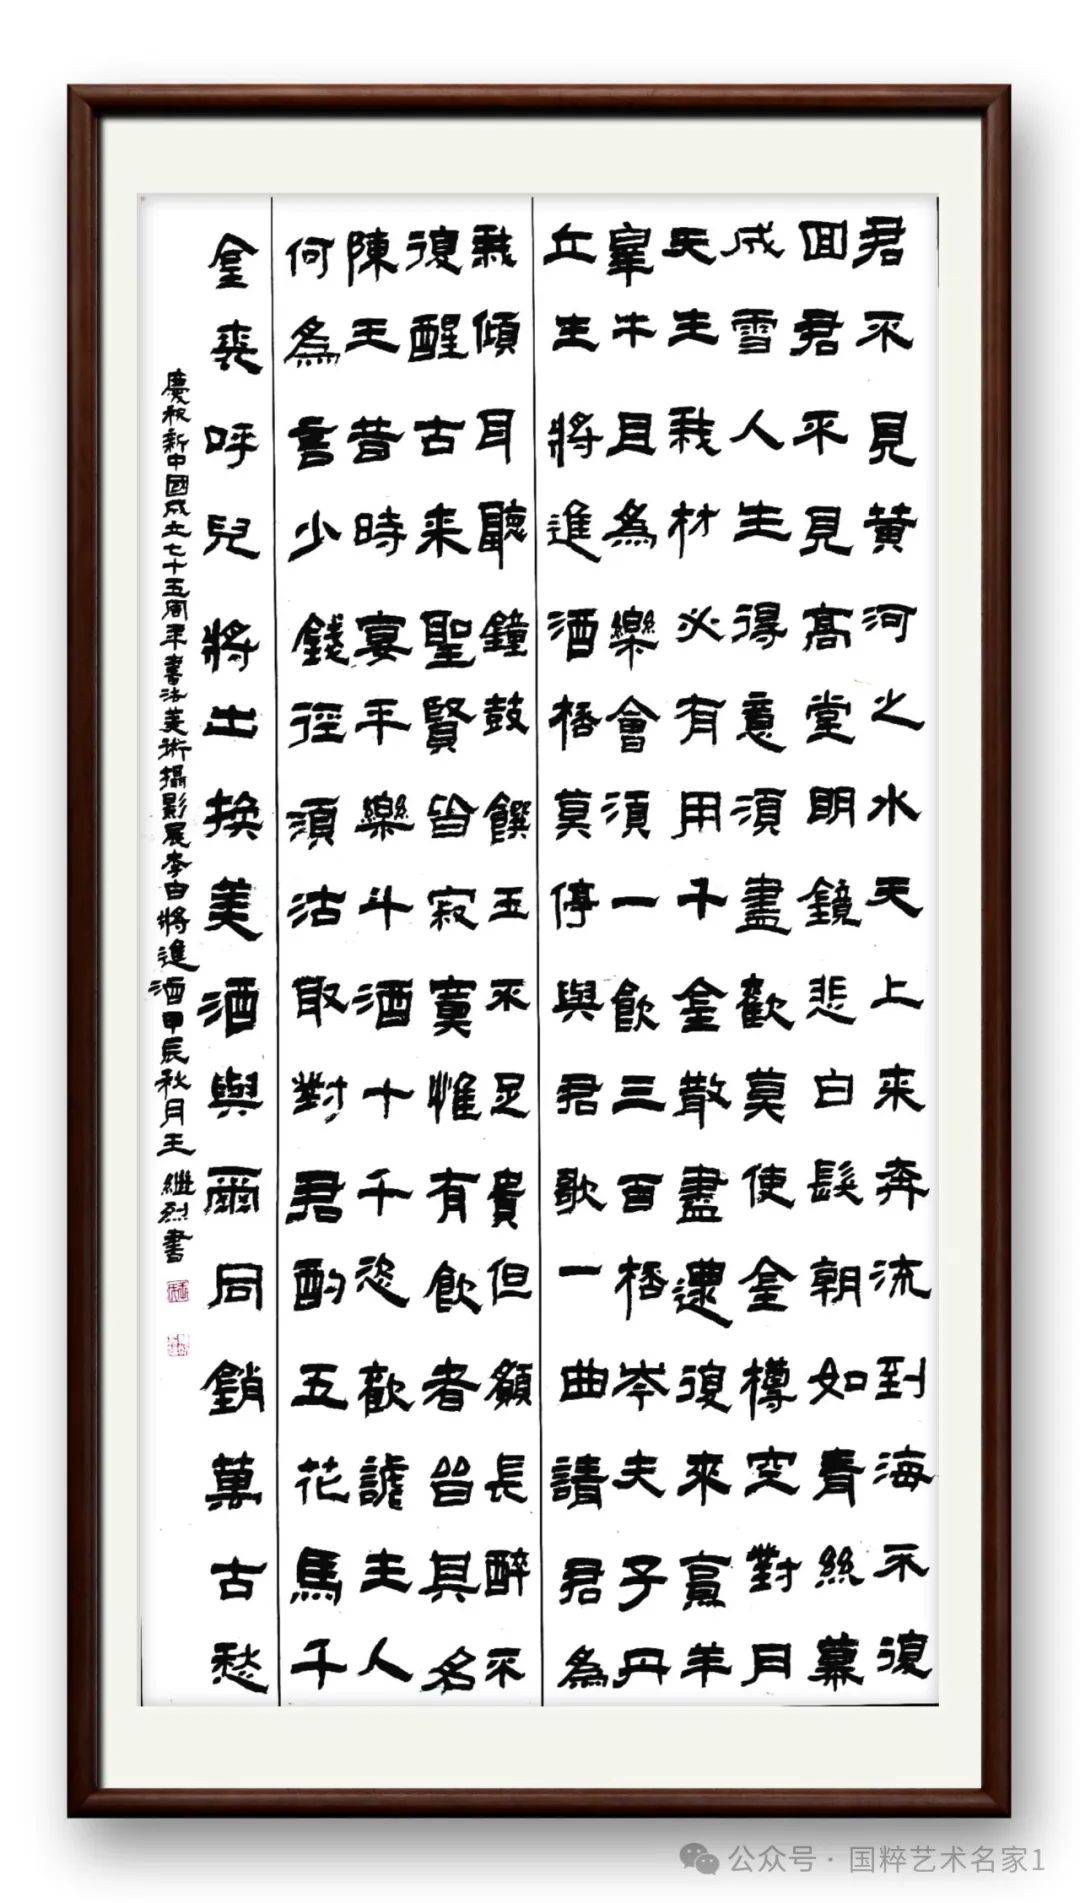 君不見黃河之水天上来奔流到海不復
回君不見高堂明鏡悲白髮朝如青絲暮
成雪人生得意須盡歡莫使金樽空對月
天生我材必有用千金散盡還復來烹羊
宰牛且為樂會須一飲三百桮岑夫子丹
丘生將進酒桮莫停與君歌一曲請君為
我傾耳聽鐘鼓饌玉不足貴但願長醉不
復醒古来聖賢皆寂寞惟有飲者留其名
陳王昔時宴平樂斗酒十千恣歡謔主人
何為言少錢徑須沽取對君酌五花馬千
金裘呼兒將出換美酒與爾同銷萬古愁
慶祝新中國成立七十五周年書法美術攝影展李白將進酒甲辰秋月王繼烈書
公众号·国粹艺术名家1